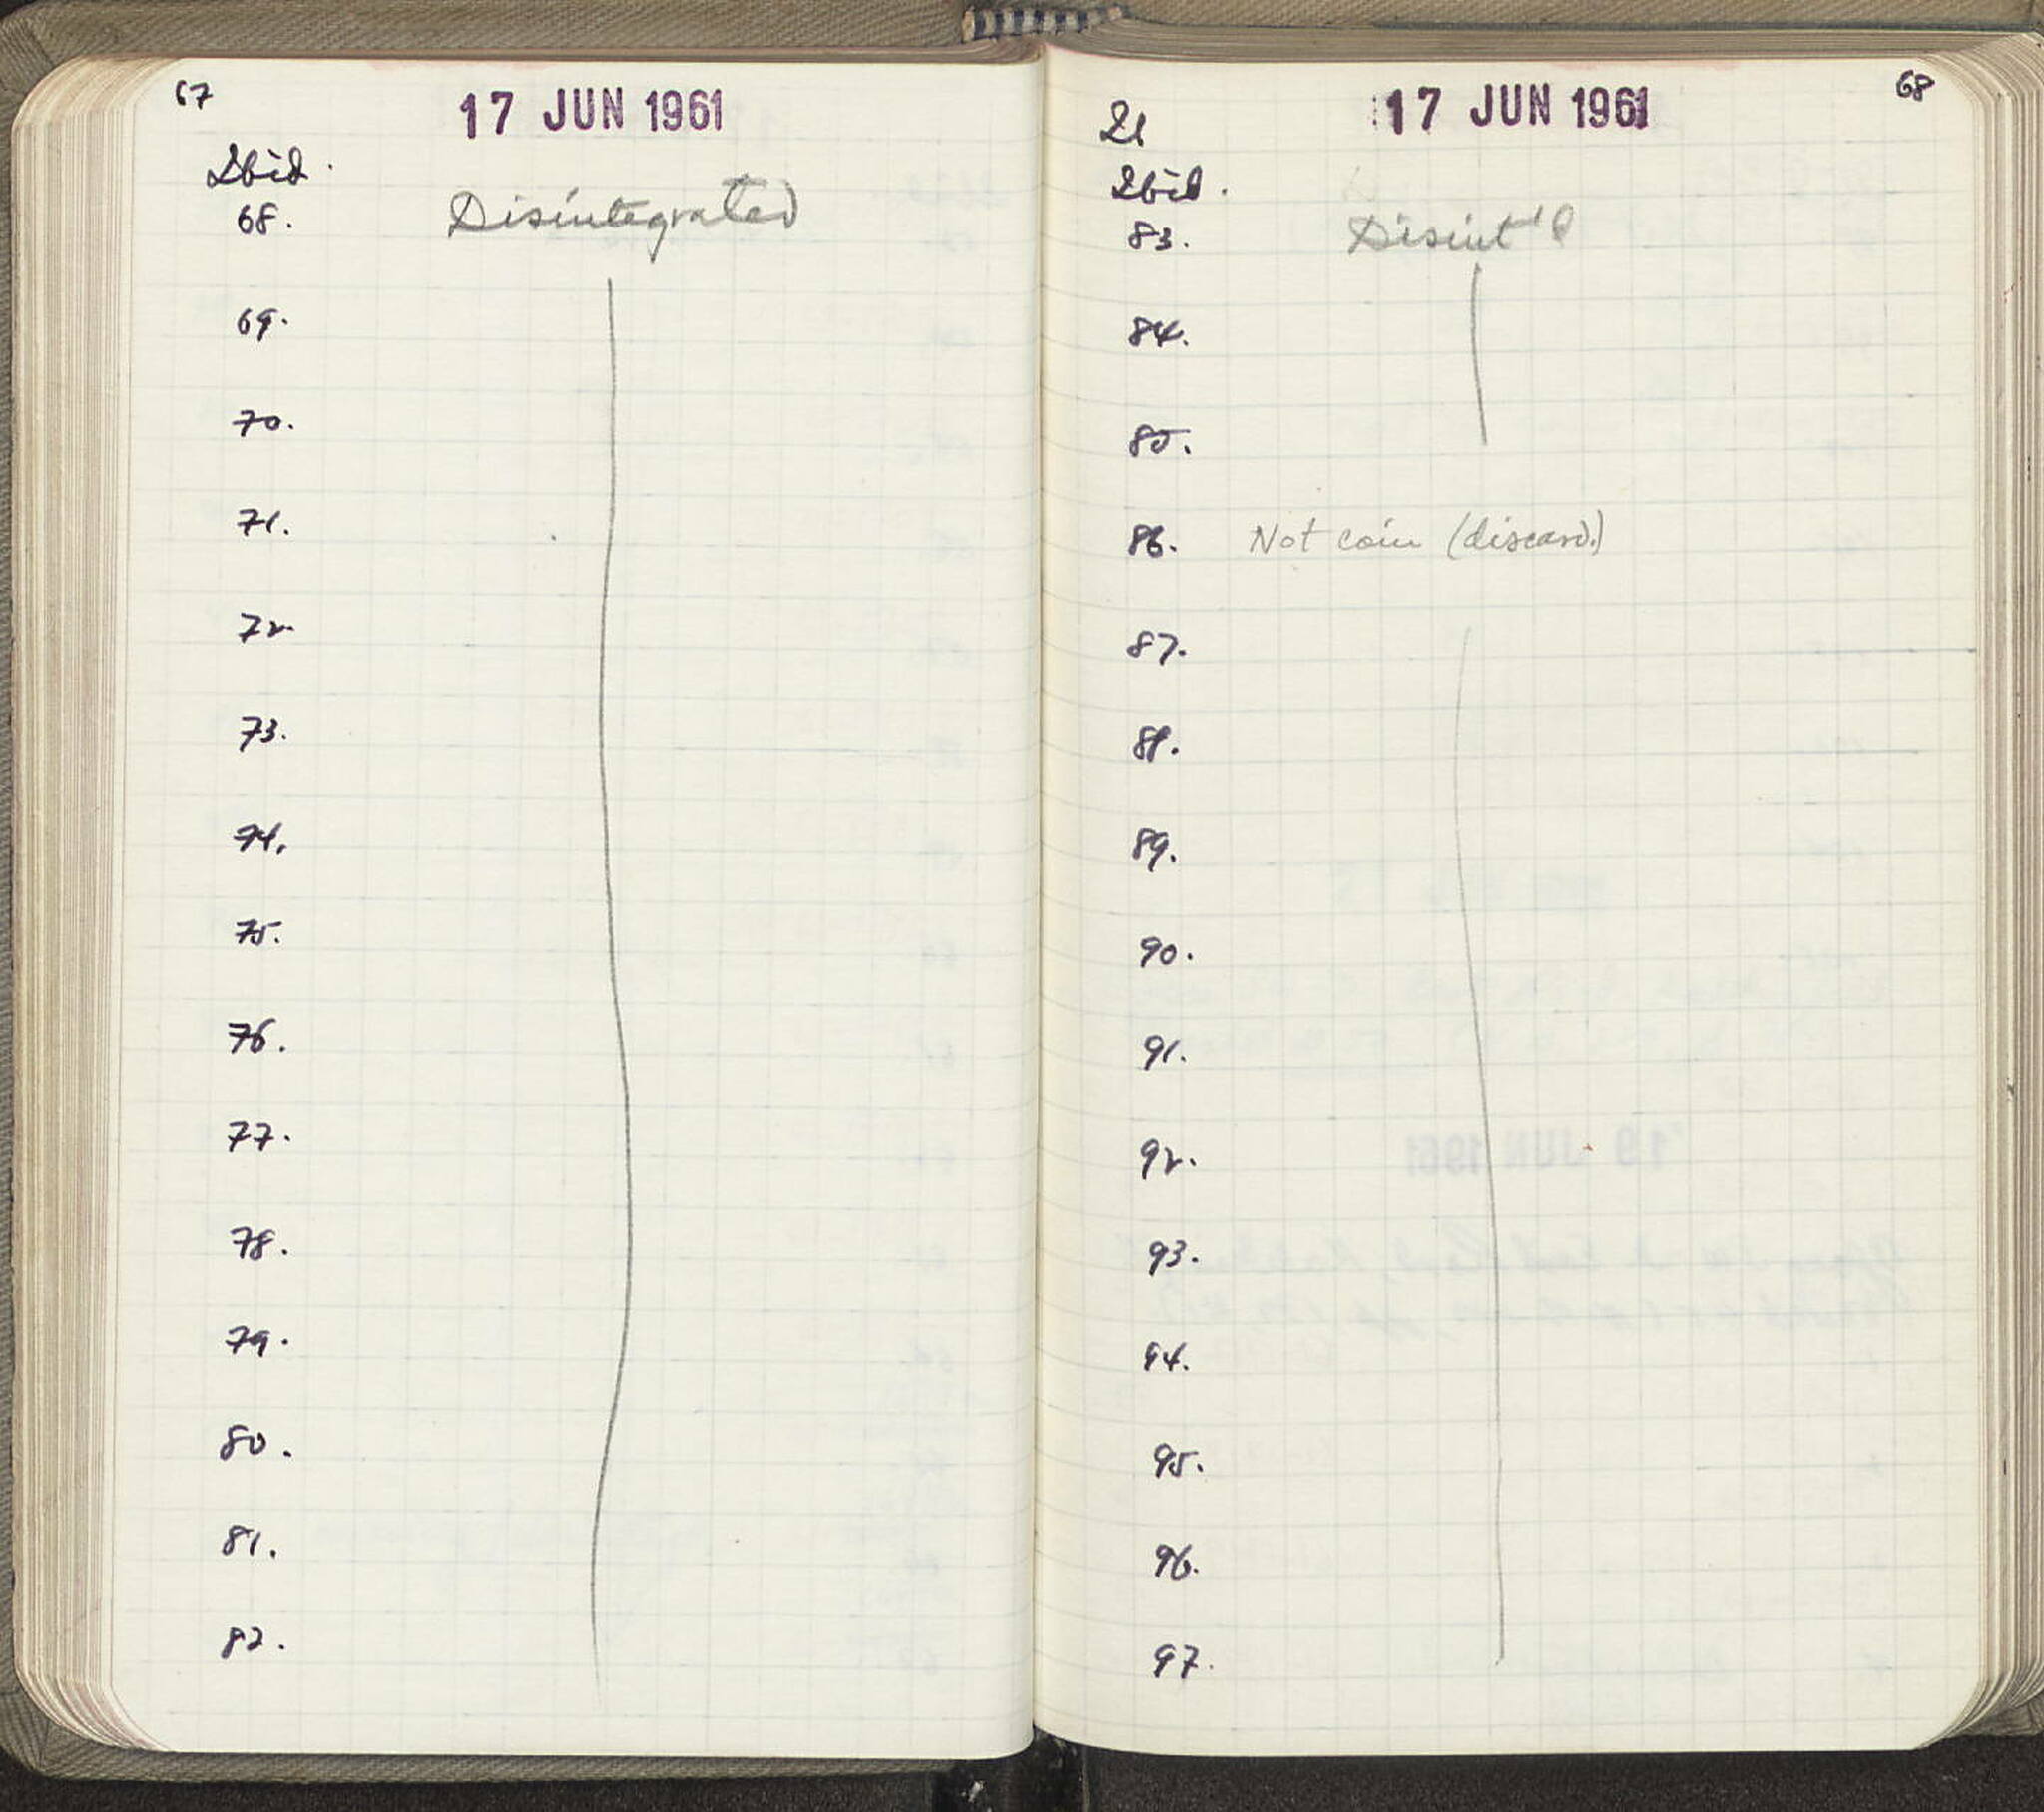 67
17 JUN 1961
Ibid.
68. Disintegrated
69.
70.
71.
72.
73.
74.
75.
76.
77.
78.
79.
80.
81.
82.
68
17 JUN 1961
Ibid.
83. Disint'd
84.
85.
86. Not coin (discard.)
87.
88.
89.
90.
91.
92.
93.
94.
95.
96.
97.